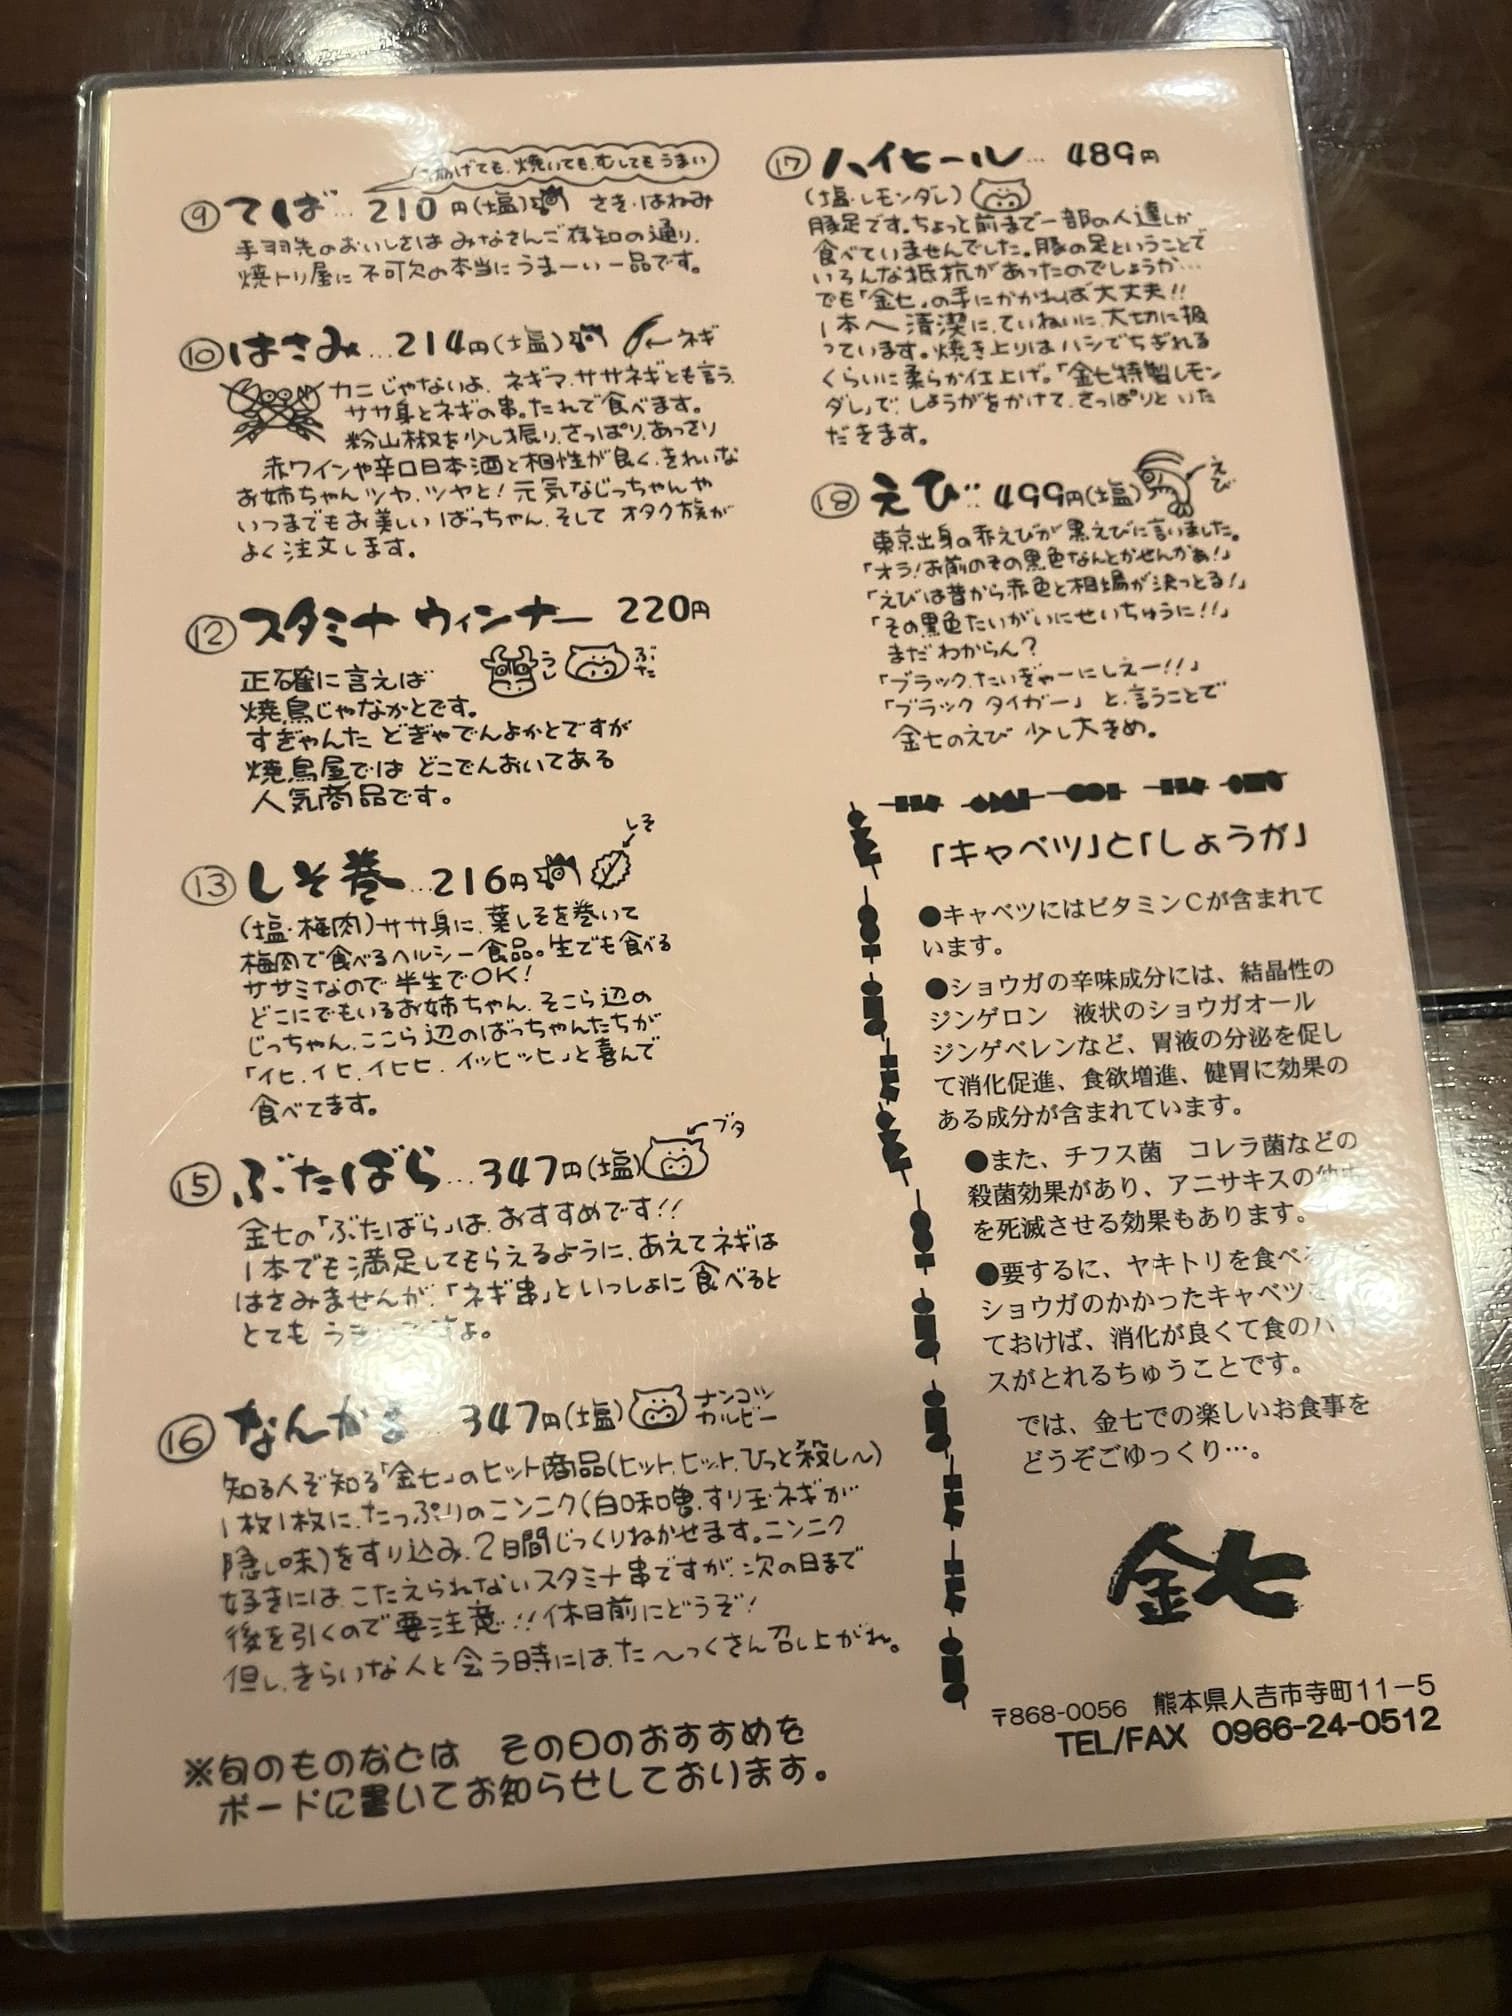 揚げても、焼いても、むしてもうまい
⑨てば…210円(塩) さき・はねみ
手羽先のおいしさは みなさんご存知の通り、
焼トリ屋に 不可欠の本当にうまーい一品です。
⑩はさみ…214円(塩) ←ネギ
カニじゃないよ、ネギマ、ササネギとも言う。
ササ身とネギの串。たれで食べます。
粉山椒を少し振り、さっぱり、あっさり
赤ワインや辛口日本酒と相性が良く、きれいな
お姉ちゃんツヤ、ツヤと!元気なじっちゃんや
いつまでもお美しい ばっちゃん、そして オタク族が
よく注文します。
⑫スタミナ ウィンナー 220円
うし ぶた
正確に言えば
焼鳥じゃなかとです。
すぎゃんた どぎゃでんよかとですが
焼鳥屋では どこでんおいてある
人気商品です。
しそ
⑬しそ巻…216円
(塩・梅肉)ササ身に、葉しそを巻いて
梅肉で食べるヘルシー食品。生でも食べる
ササミなので 半生でOK!
どこにでもいるお姉ちゃん、そこら辺の
じっちゃん、ここら辺のばっちゃんたちが
「イヒ、イヒ、イヒヒ、イッヒッヒ」と喜んで
食べてます。
⑮ぶたばら…347円(塩) ←ブタ
金七の「ぶたばら」は、おすすめです!!
1本でも満足してもらえるように、あえてネギは
はさみませんが、「ネギ串」といっしょに食べると
とても
⑯なんかる…347円(塩) ナンコツ
カルビー
知る人ぞ知る「金七」のヒット商品(ヒット、ヒット、ひっと殺し〜)
1枚1枚に、たっぷりのニンニク(白味噌、すり玉ネギが
隠し味)をすり込み、2日間じっくりねかせます。ニンニク
好きには、こたえられないスタミナ串ですが、次の日まで
後を引くので要注意!!休日前にどうぞ!
但し、きらいな人と会う時には、た〜っくさん召し上がれ。
※旬のものなどは その日のおすすめを
ボードに書いてお知らせしております。
⑰ハイヒール… 489円
(塩・レモンダレ)
豚足です。ちょっと前まで一部の人達しか
食べていませんでした。豚の足ということで
いろんな抵抗があったのでしょうか…
でも「金七」の手にかかれば大丈夫!!
1本へ清潔に、ていねいに、大切に扱
っています。焼き上りはハシでちぎれる
くらいに柔らか仕上げ。「金七特製レモン
ダレ」で、しょうがをかけて、さっぱりといた
だきます。
⑱えび‥499円(塩) えび
東京出身の赤えびが黒えびに言いました。
「オラ!お前のその黒色なんとかせんかぁ!」
「えびは昔から赤色と相場が決っとる!」
「その黒色たいがいにせいちゅうに!!」
まだ わからん?
「ブラック、たいぎゃーにしえー!!」
「ブラック タイガー」と、言うことで
金七のえび 少し大きめ。
「キャベツ」と「しょうが」
●キャベツにはビタミンCが含まれて
います。
●ショウガの辛味成分には、結晶性の
ジンゲロン 液状のショウガオール
ジンゲベレンなど、胃液の分泌を促し
て消化促進、食欲増進、健胃に効果の
ある成分が含まれています。
●また、チフス菌 コレラ菌などの
殺菌効果があり、アニサキスの
を死滅させる効果もあります。
●要するに、ヤキトリを食べる
ショウガのかかったキャベツ
ておけば、消化が良くて食の
スがとれるちゅうことです。
では、金七での楽しいお食事を
どうぞごゆっくり…。
金七
〒868-0056 熊本県人吉市寺町11-5
TEL/FAX 0966-24-0512